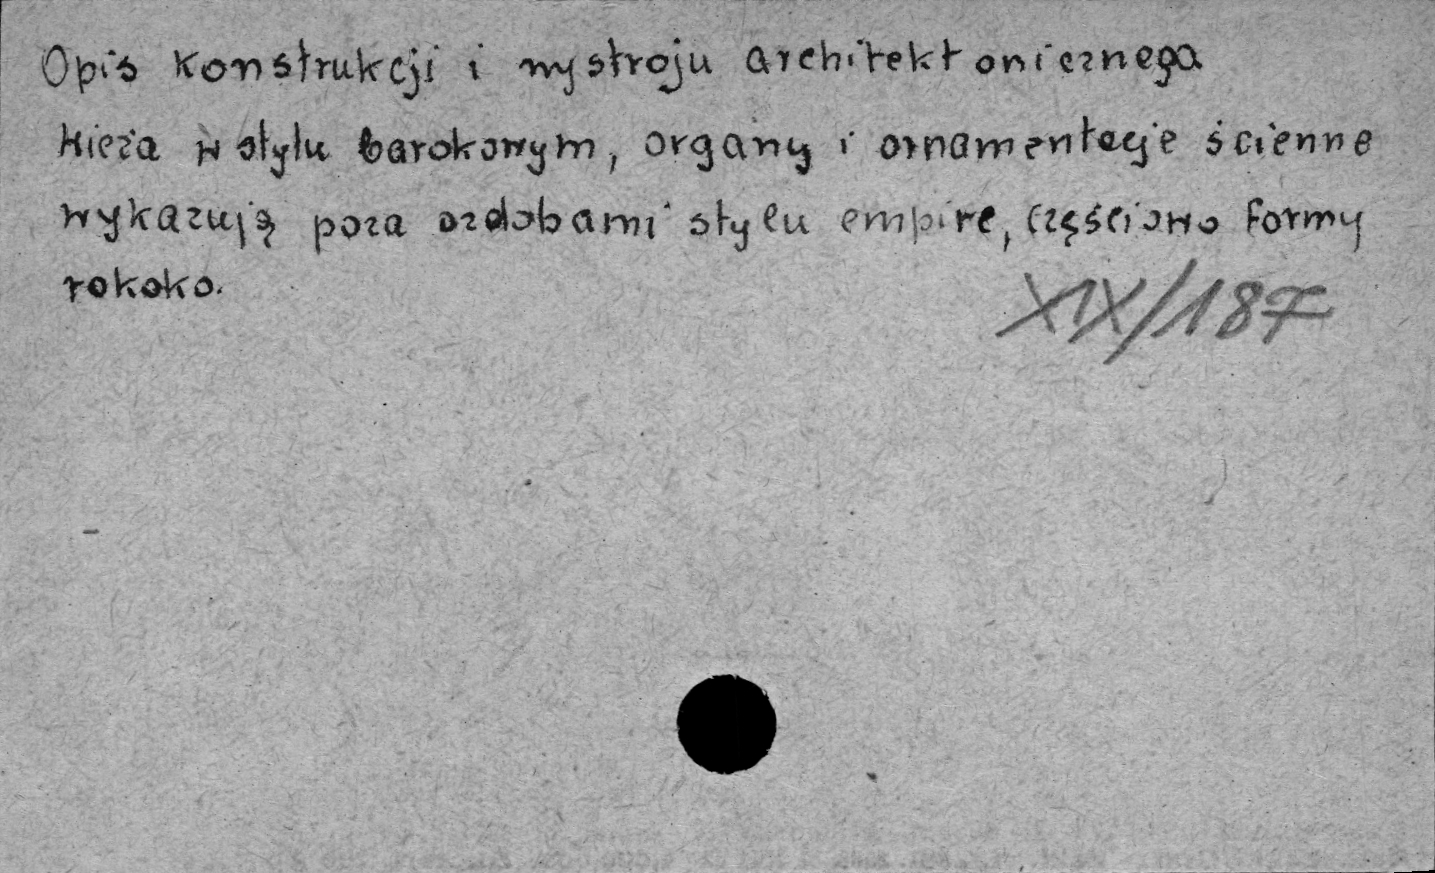 Opis konstrukcji i wystroju architektonicznega
wieża w stylu barokowym, organy i ornamentacje ścienne
wykazują poza ozdobami stylu empire, częściowo formy
rokoko.
XIX/187